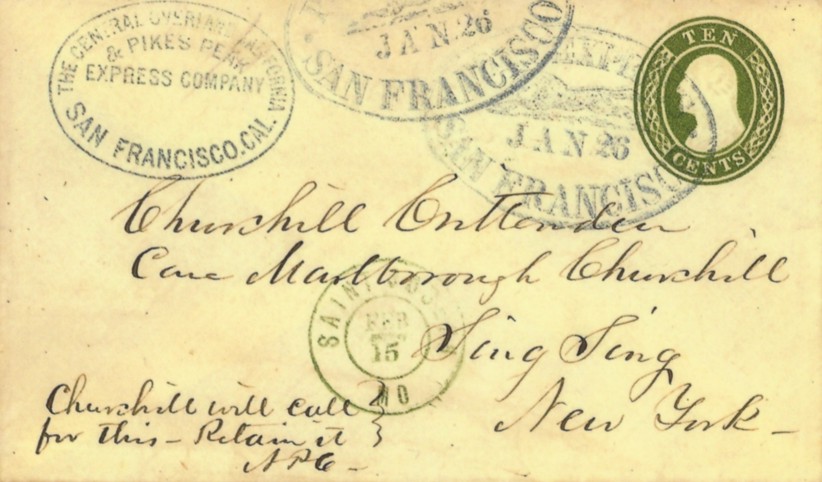 THE CENTRAL OVERLAND CALIFORNIA
& PIKES PEAK
EXPRESS COMPANY
SAN FRANCISCO.CAL.
JAN.26
SAN FRANCISCO
JAN 26
SAN FRANCISCO
TEN
CENTS
Churchill Crittenden
Care Marlborough Churchill
Sing Sing
New York
SAINT
FEB
15
MO
Churchill will call
for this - Retain it